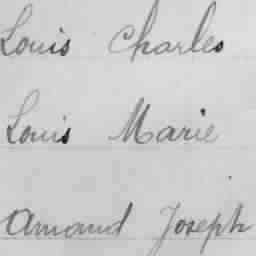 Louis Charles
Louis Marie
Armand Joseph